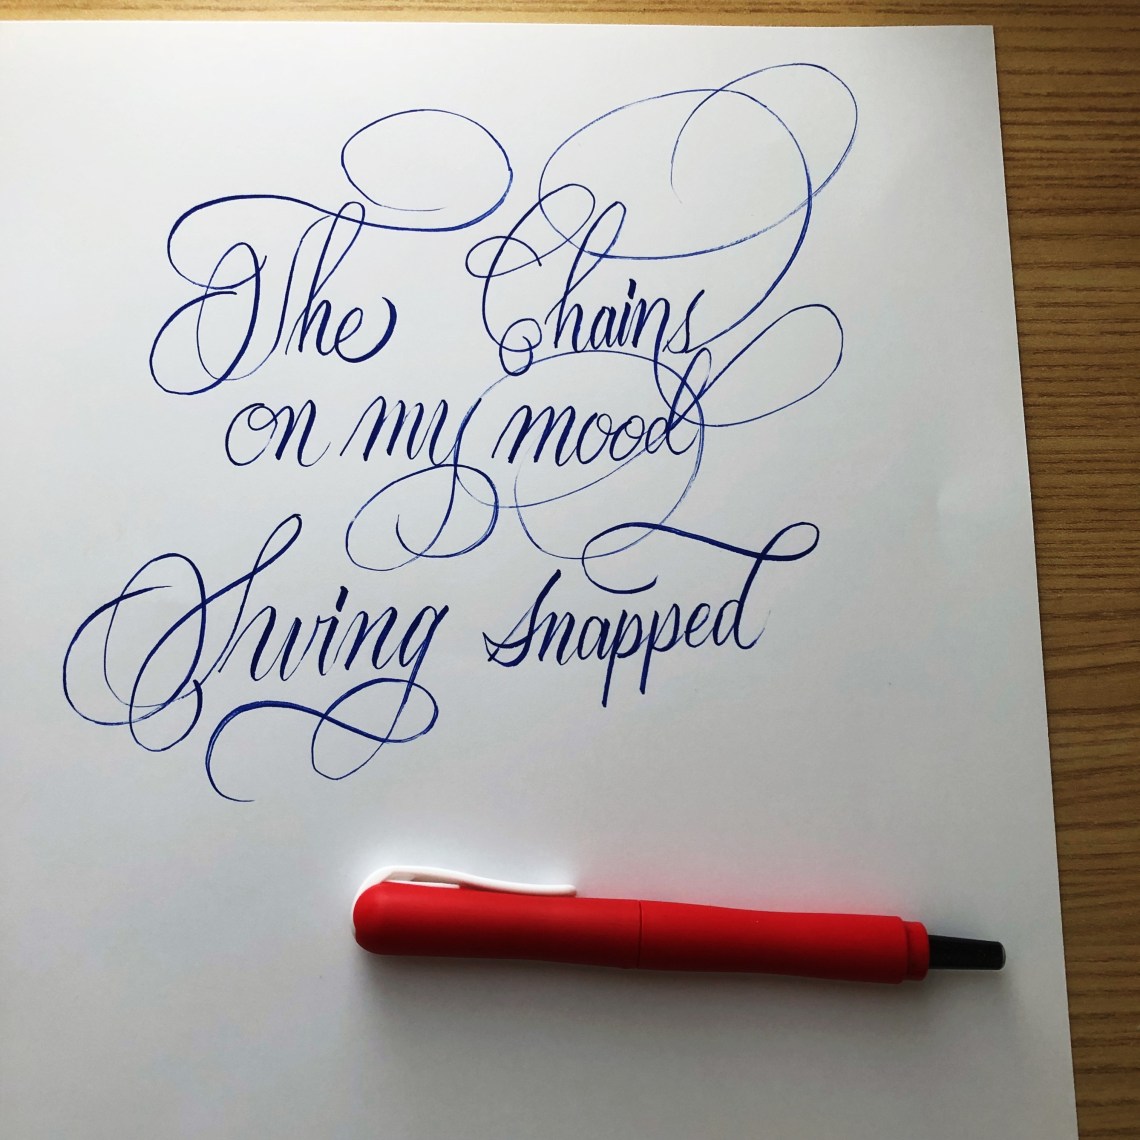 The Chains
on my mood
Swing snapped